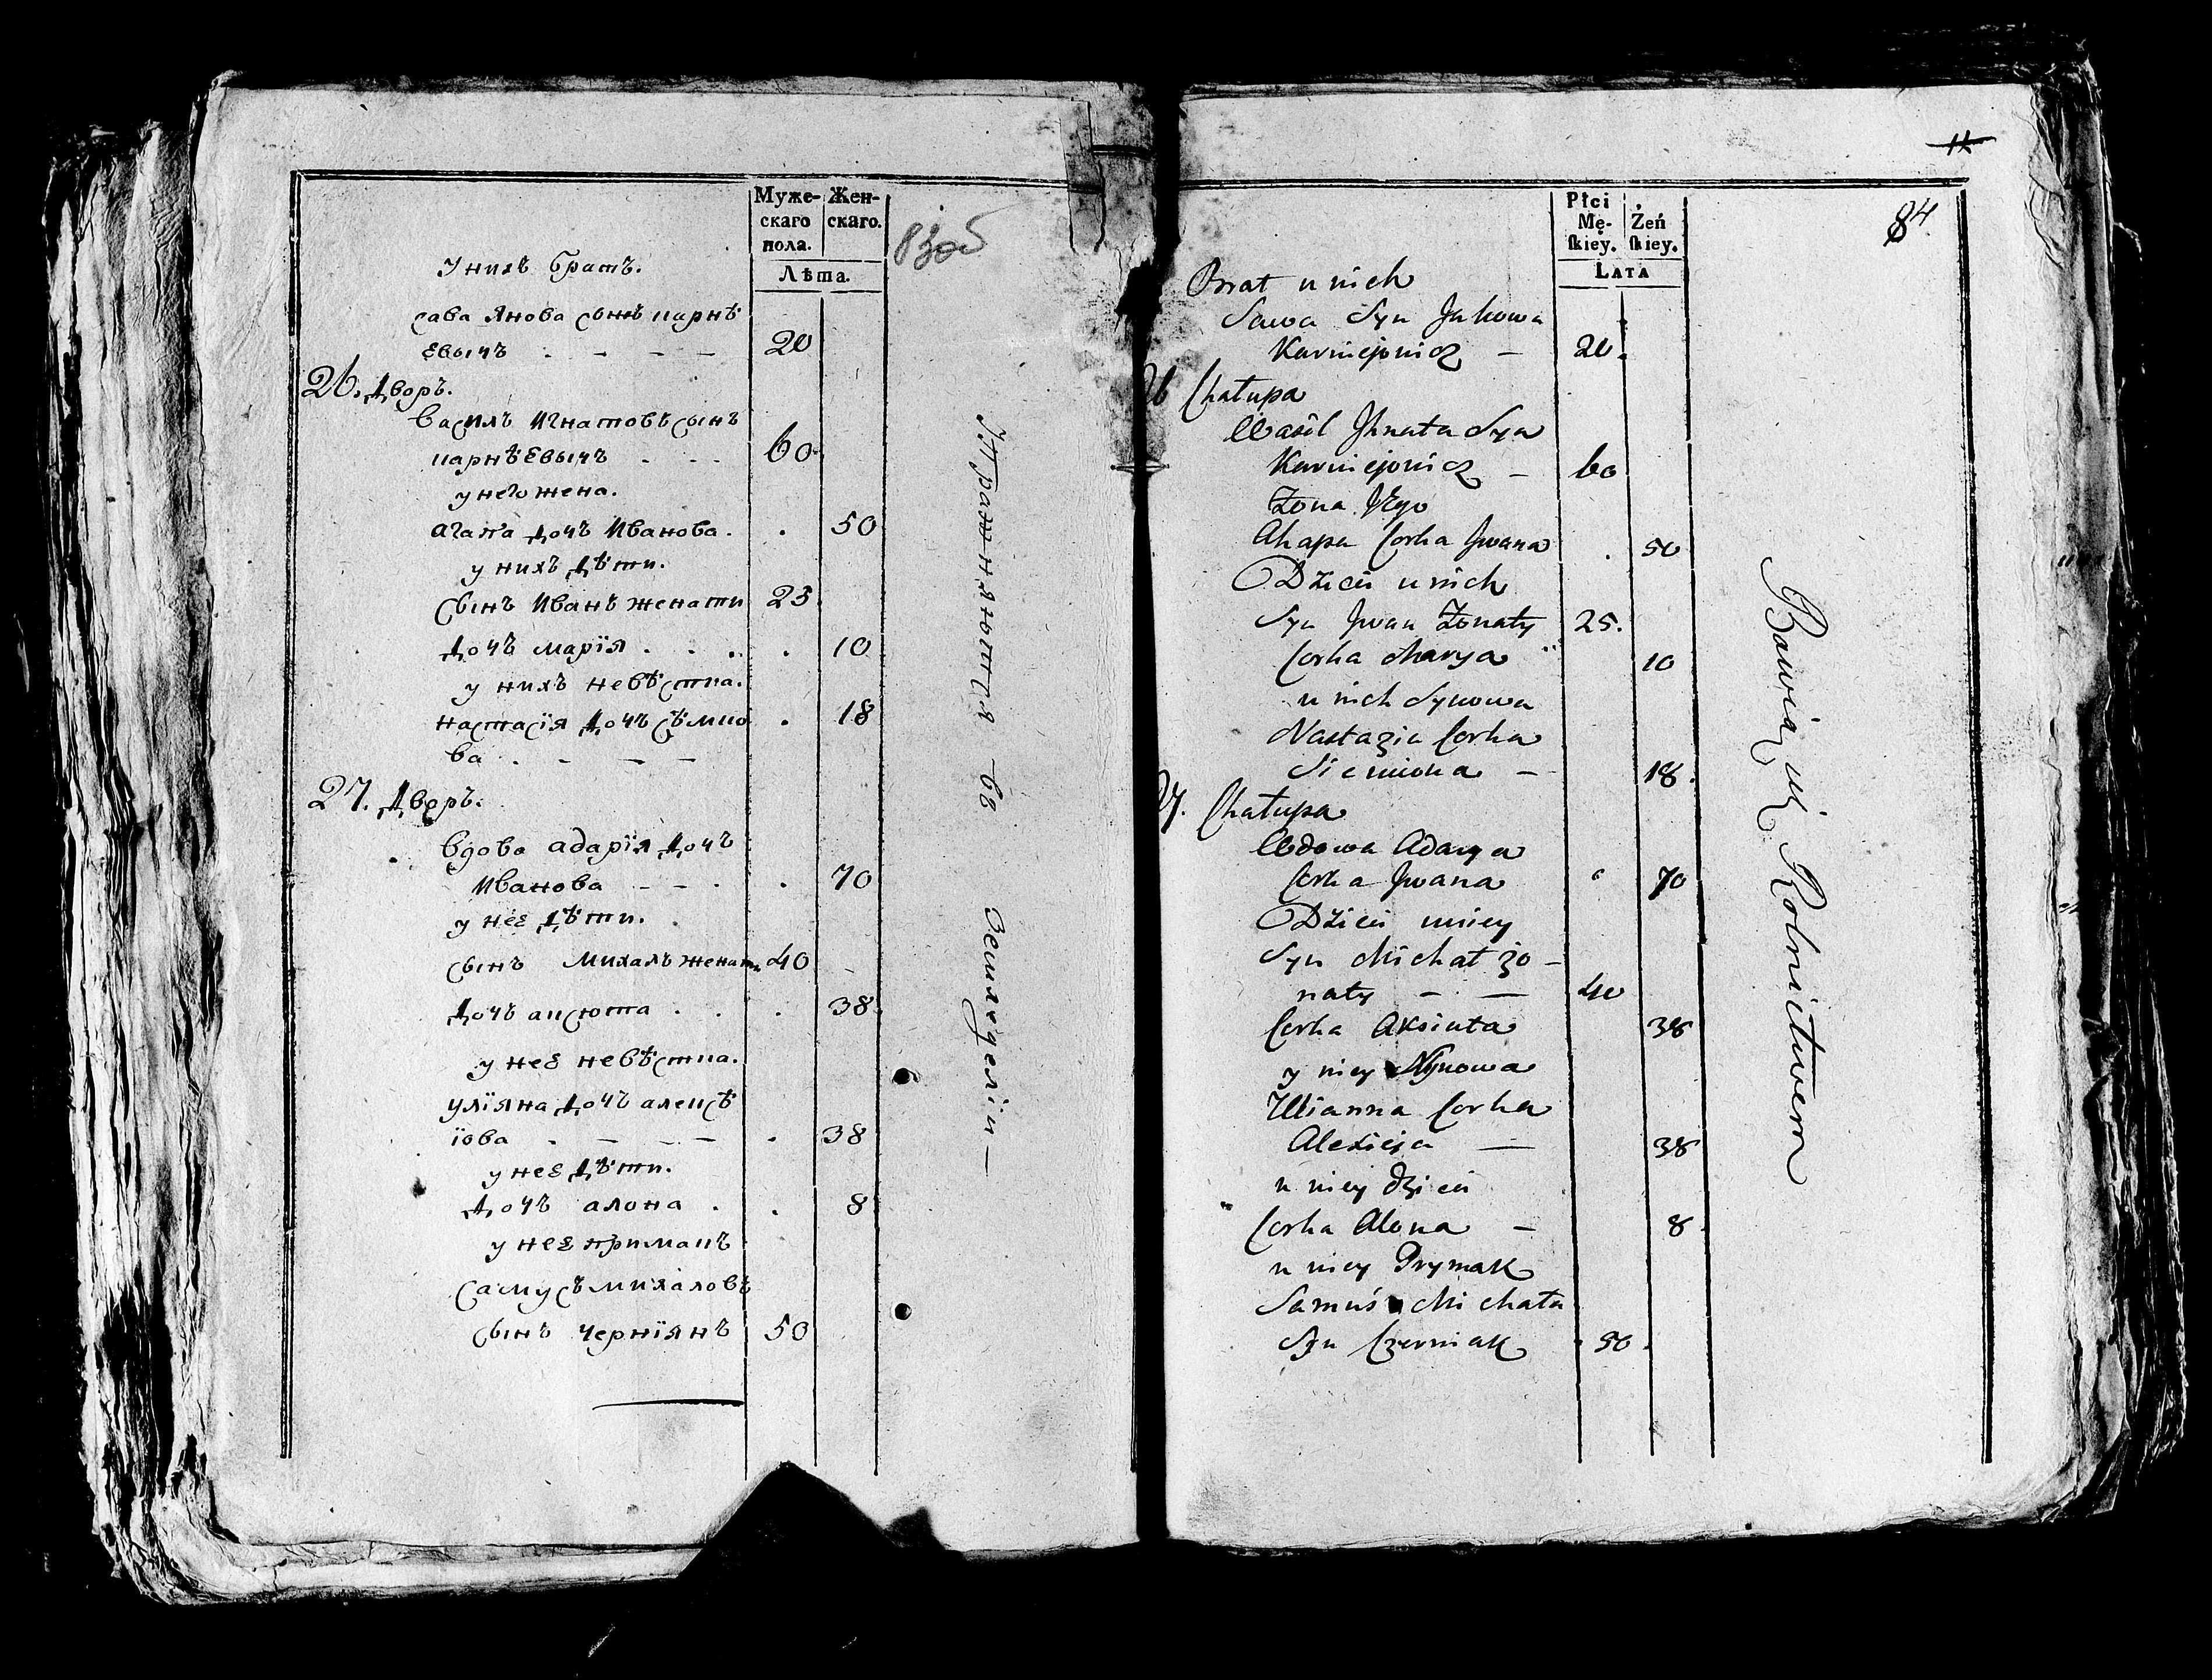 Муже-
скаго
пола.
Жен-
скаго.
Лѣта.
83об
У нихъ братъ.
сава Янова сынъ карнѣ
евычъ 20
26. Дворъ.
василъ Игнатовъ сынъ
карнѣевычъ 60
у него жена.
агапа дочъ Иванова. 50
у нихъ дѣти.
сынъ Иванъ женати 25
дочъ марїя 10
у нихъ невѣстка.
настасїя дочъ сѣмио 18
ва
27. Дворъ.
вдова адарїя дочъ
Иванова 70
у неє дѣти.
сынъ Михалъ женати 40
дочъ аксюта 38
у неє невѣстка.
улїяна дочъ алексѣ
їова 38
у неє дѣти.
дочъ алона 8
у неє примакъ
самусъ михаловъ
сынъ чернїякъ 50
Упражняются въ Земледелiи
11
84
Płci
Mę-
skiey.
Żeń
skiey.
LATA
Brat u nich
Sawa Syn Jakowa
Karniejewicz 20.
26 Chałupa
Wasil Jhnata Syn
Karniejewicz 60
Żona Jego
Ahapa Corka Jwana 50
Dzieci u nich
Syn Jwan Żonaty 25.
Corka Marya 10
u nich Synowa
Nastazia Corka
Siemiona 18.
27. Chałupa
Wdowa Adarya
Corka Jwana 70
Dzieci u niey
Syn Michał żo-
naty 40
Corka Aksiuta 38
u niey Synowa
Ulianna Corka
Alexieja 38
u niey dzieci
Corka Alona 8
u niey Prymak
Samuś Michała
Syn Czerniak 50.
Bawią się Rolnictwem